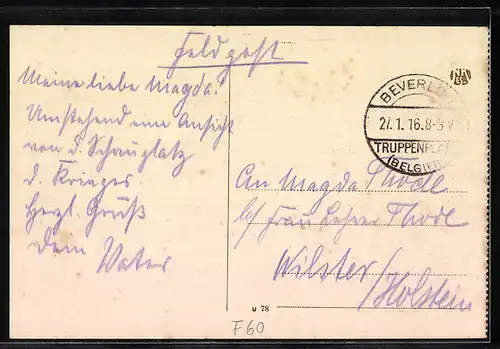 Feldpost
Meine liebe Magda!
Umstehend eine Ansicht
von d. Schauplatz
d. Krieges
Herzl. Gruß
Dein Vater
BEVERLOO
27.1.16.8-9V
TRUPPENPLATZ
(BELGIEN)
An Magda Thode
b/ Frau Lehrer Thode
Wilster/
/Holstein
u 78
F60